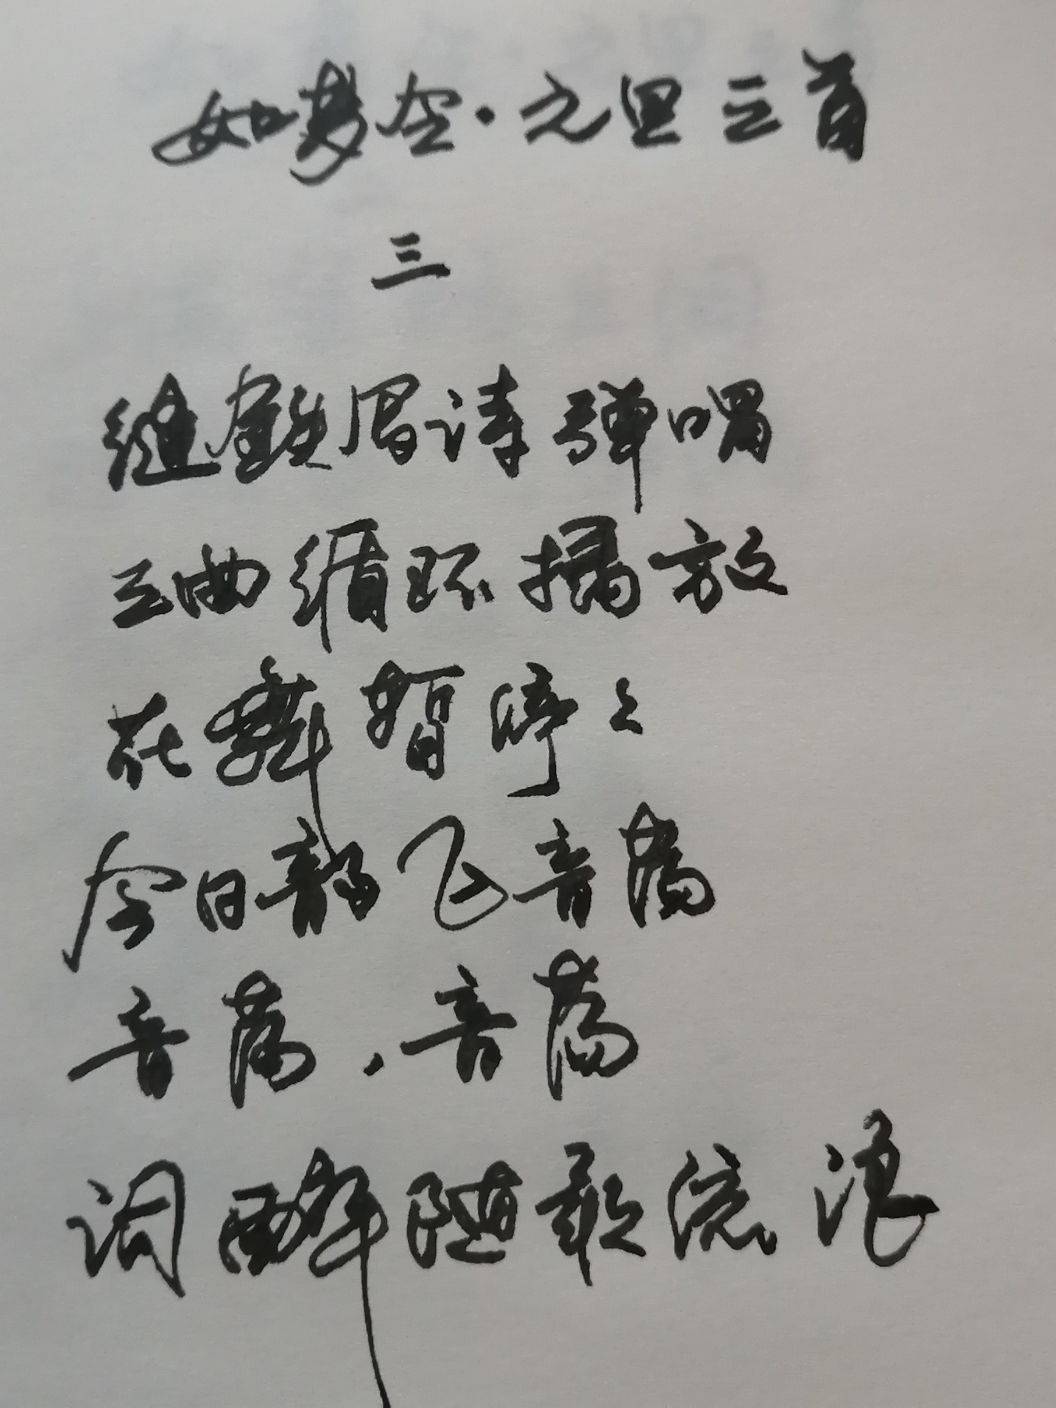 如梦令·元里三首
三
缝眉诗弹唱
三曲循环播放
花舞暂停之
今日韵飞音荡
音荡，音荡
词醉随歌流浪